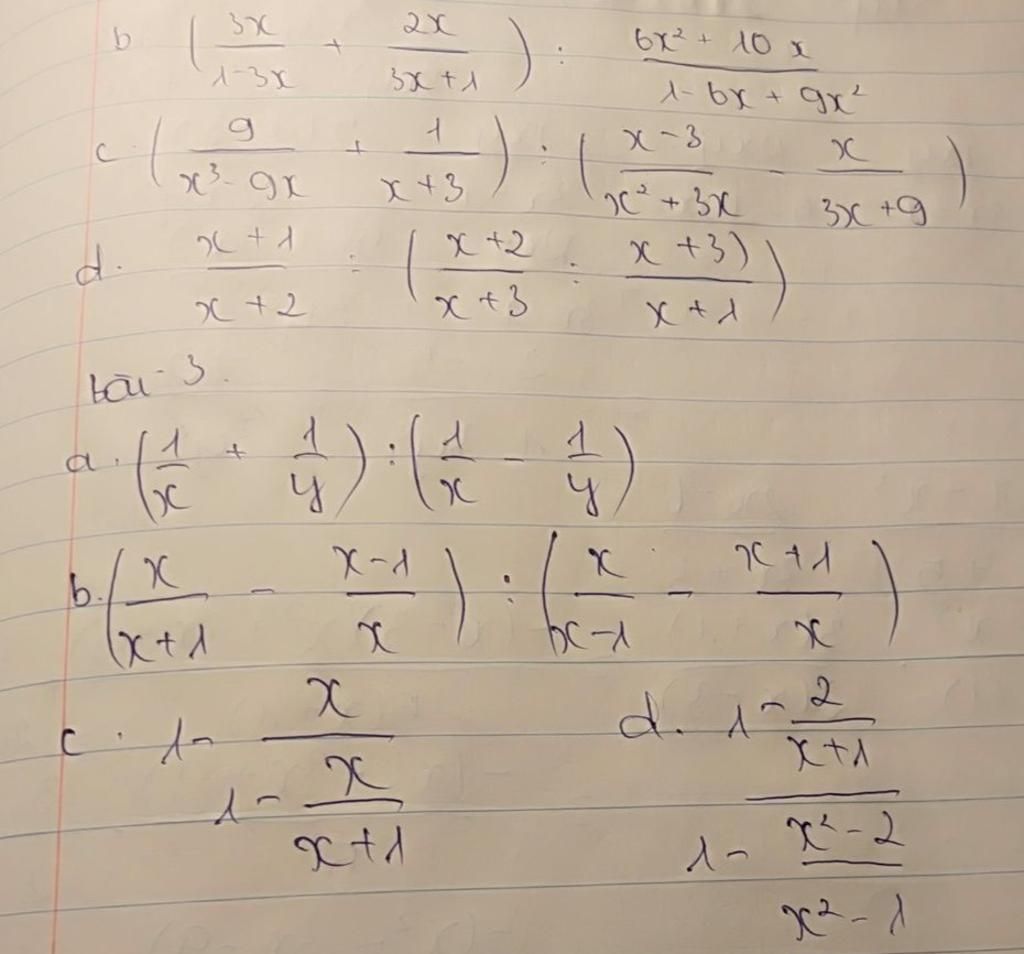 b (3x/(1-3x) + 2x/(3x+1)) : (6x² + 10x)/(1-6x+9x²)
c. (9/(x³-9x) + 1/(x+3)) : ((x-3)/(x²+3x) - x/(3x+9))
d. (x+1)/(x+2) : ((x+2)/(x+3) : (x+3))/(x+1))
bài 3.
a. (1/x + 1/y) : (1/x - 1/y)
b. (x/(x+1) - (x-1)/x) : (x/(x-1) - (x+1)/x)
c. 1 - x/(1 - x/(x+1)) d. (1 - 2/(x+1))/(1 - (x²-2)/(x²-1))